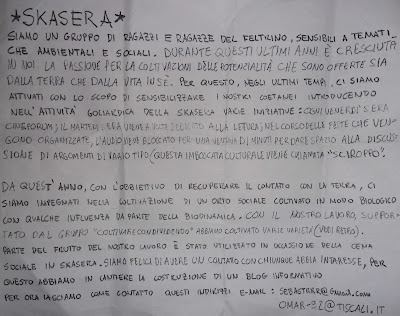 *SKASERA*
SIAMO UN GRUPPO DI RAGAZZI E RAGAZZE DEL FELTRINO, SENSIBILI A TEMATI-
CHE AMBIENTALI E SOCIALI. DURANTE QUESTI ULTIMI ANNI È CRESCIUTA
IN NOI LA PASSIONE PER LA COLTIVAZIONE DELLE POTENZIALITÀ CHE SONO OFFERTE SIA
DALLA TERRA CHE DALLA VITA IN SÈ. PER QUESTO, NEGLI ULTIMI TEMPI CI SIAMO
ATTIVATI CON LO SCOPO DI SENSIBILIZZARE I NOSTRI COETANEI INTRODUCENDO
NELL'ATTIVITÀ GOLIARDICA DELLA SKASERA VARIE INIZIATIVE: OGNI VENERDÌ SERA
CINEFORUM; IL MARTEDÌ SERA VIENE A VOLTE DEDICATO ALLA LETTURA; NEL CORSO DELLE FESTE CHE VEN-
GONO ORGANIZZATE, L'AUDIO VIENE BLOCCATO PER UNA VENTINA DI MINUTI PER DARE SPAZIO ALLA DISCUS-
SIONE DI ARGOMENTI DI VARIO TIPO (QUESTA IMBOSCATA CULTURALE VIENE CHIAMATA "SCIROPPO".
DA QUEST'ANNO, CON L'OBBIETTIVO DI RECUPERARE IL CONTATTO CON LA TERRA, CI
SIAMO IMPEGNATI NELLA COLTIVAZIONE DI UN ORTO SOCIALE COLTIVATO IN MODO BIOLOGICO
CON QUALCHE INFLUENZA DA PARTE DELLA BIODINAMICA. CON IL NOSTRO LAVORO, SUPPOR-
TATO DAL GRUPPO "COLTIVARE CONDIVIDENDO" ABBIAMO COLTIVATO VARIE VARIETÀ (VEDI RETRO).
PARTE DEL FRUTTO DEL NOSTRO LAVORO È STATO UTILIZZATO IN OCCASIONE DELLA CENA
SOCIALE IN SKASERA. SIAMO FELICI DI AVERE UN CONTATO CON CHIUNQUE ABBIA INTERESSE, PER
QUESTO ABBIAMO IN CANTIERE LA COSTRUZIONE DI UN BLOG INFORMATIVO
PER ORA LASCIAMO COME CONTATTO QUESTI INDIRIZZI E-MAIL: @GMAIL.COM
OMAR-32@TISCALI.IT